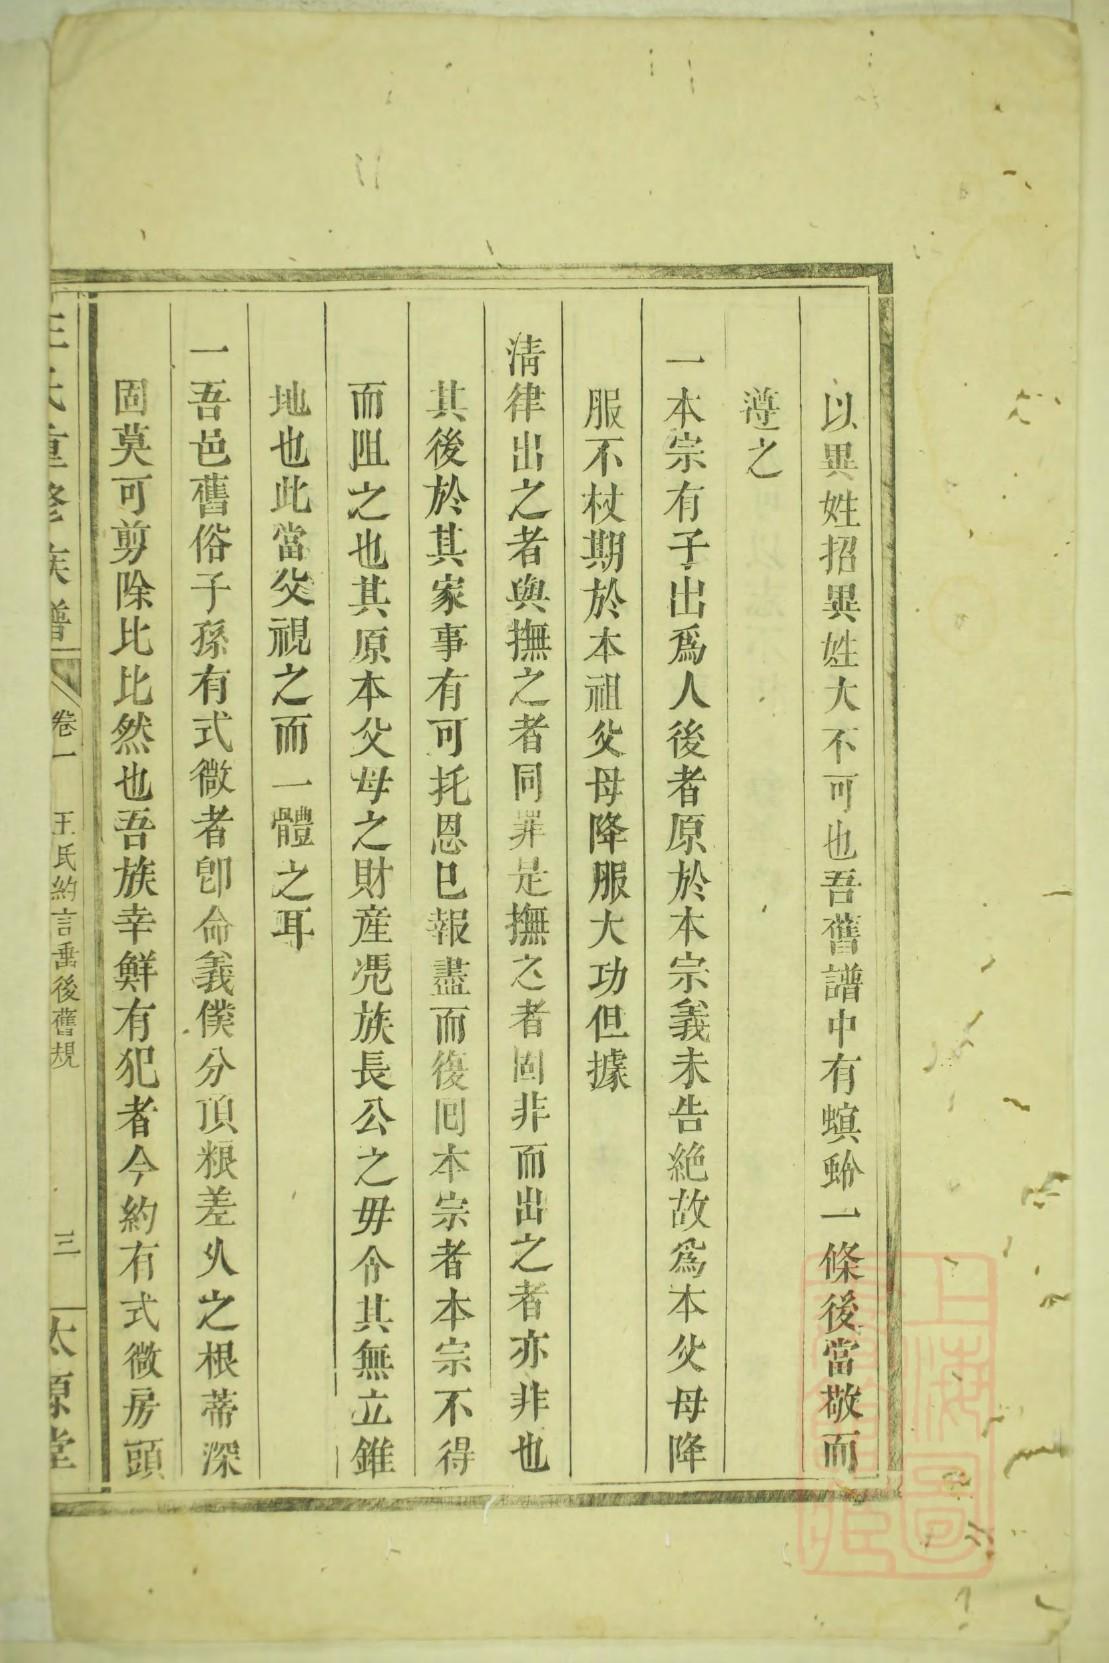 以異姓招異姓大不可也吾舊譜中有螟蛉一條後當敬而
遵之
一本宗有子出爲人後者原於本宗義未告絶故爲本父母降
服不杖期於本祖父母降服大功但據
淸律出之者與撫之者同罪是撫之者固非而出之者亦非也
其後於其家事有可托恩已報盡而復囘本宗者本宗不得
而阻之也其原本父母之財産凴族長公之毋令其無立錐
地也此當父視之而一體之耳
一吾邑舊俗子孫有式微者卽命義僕分頂粮差乆之根蒂深
固莫可剪除比比然也吾族幸鮮有犯者今約有式微房頭
王氏重修族譜
卷一
王氏約言垂後舊規
三
太原堂
上海圖